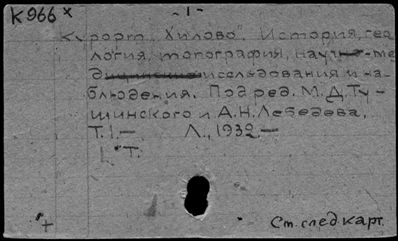 К966 х
- 1 -
Курорт „Хилово". История, гео
логия, топография, науч-ме
д исследования и на-
блюдения. Под ред. М.Д.Ту-
шинского и А.Н.Лебедева.
Т.1.— Л., 1932.—
Т.
+
См. след. карт.